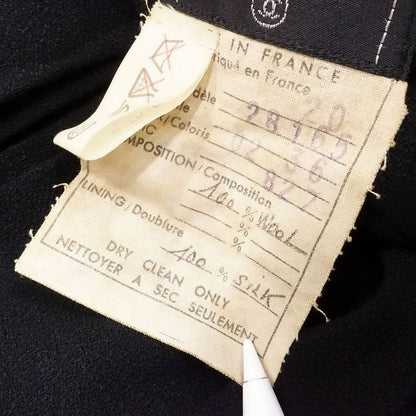 IN FRANCE
riqué en France
dèle 20
le 28165
/Coloris 02 36
IC 827
MPOSITION/Composition
100 % Wool
%
%
LINING/Doublure
100 % Silk
DRY CLEAN ONLY
NETTOYER A SEC SEULEMENT